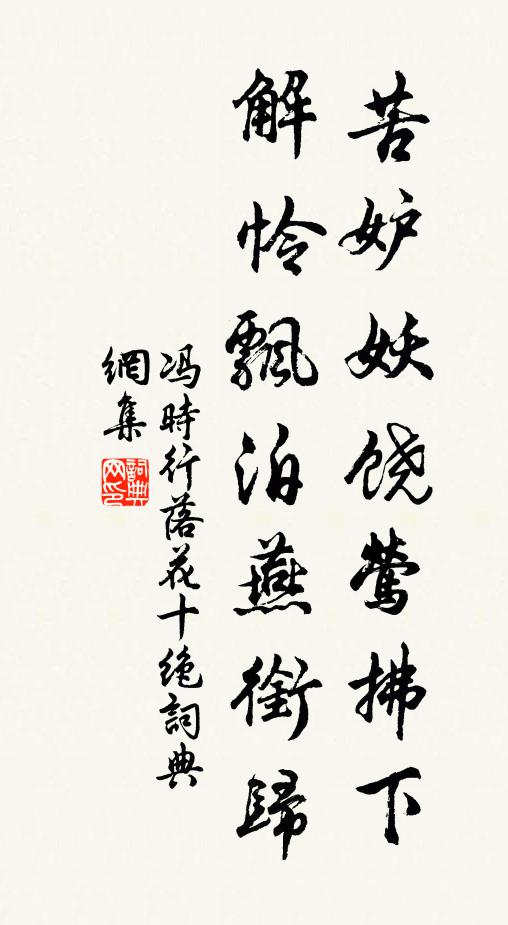 苦妒妖饶莺拂下
解怜飘泊燕衔歸
冯時行落花十绝詞典
網集
詞典
网印